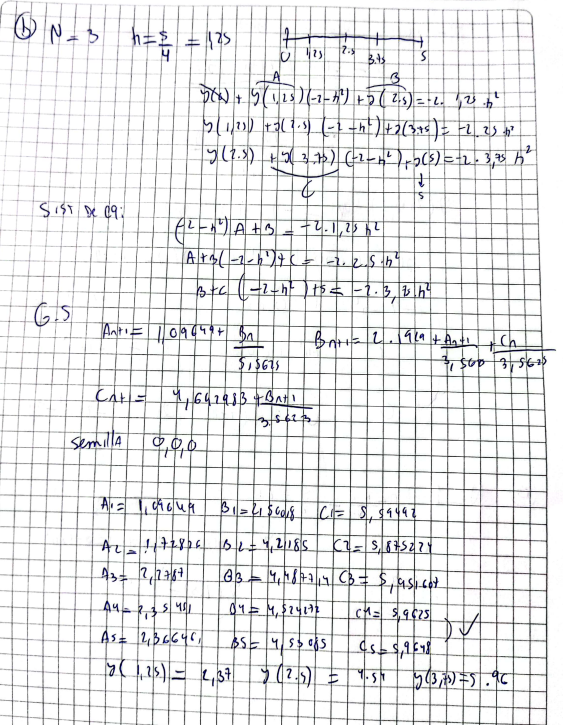 b) N = 3 h = 5/4 = 1,25
0 1,25 2.5 3.75 5
A B
y(0) + y(1,25)(-2-h²) + y(2.5) = -2. 1,25 .h²
y(1,25) + y(2.5) (-2-h²) + y(3.75) = -2. 2.5 h²
y(2.5) + y(3.75) (-2-h²) + y(5) = -2. 3,75 h²
C 5
SIST DE eq:
(-2-h²) A + B = -2.1,25 h²
A + B(-2-h²) + C = -2. 2.5 .h²
B + C (-2-h²) + 5 = -2. 3, .h²
G.S
An+1 = 1,09649 + Bn/3,5625 Bn+1 = 2.1929 + An+1/3,560 + Cn/3,5625
Cn+1 = 4,692983 + Bn+1/3.5623
semilla 0,0,0
A1 = 1,09649 B1 = 2,5008 C1 = 5,39492
A2 = 1,72826 B2 = 4,21185 C2 = 5,875224
A3 = 2,2787 B3 = 4,48771,4 C3 = 5,951607
A4 = 2,35 B4 = 4,524272 C4 = 5,9625
A5 = 2,36646 B5 = 4,53085 C5 = 5,9648 ✓
y(1,25) = 2,37 y(2.5) = 4.54 y(3,75) = 5.96